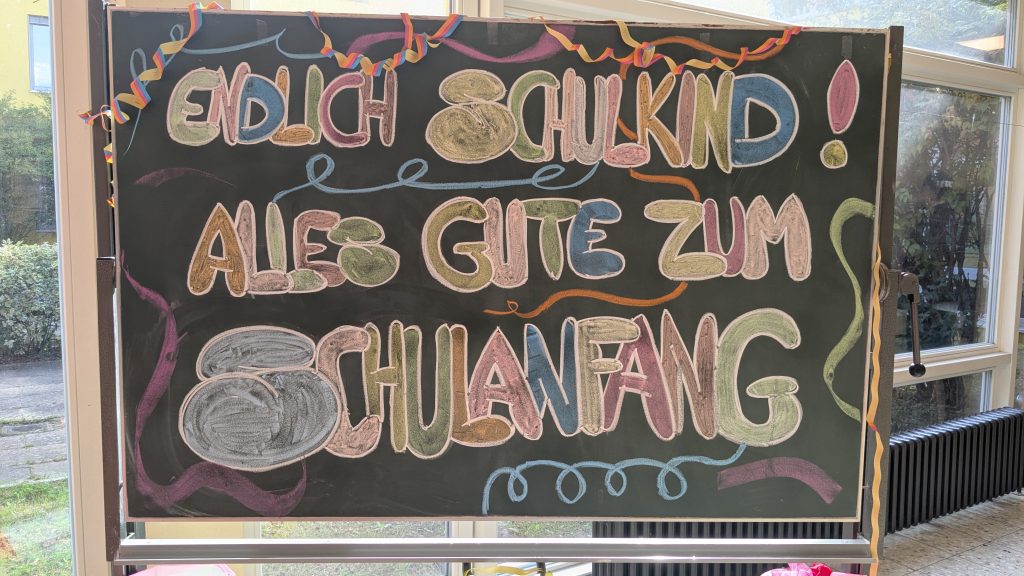 ENDLICH SCHULKIND!
ALLES GUTE ZUM
SCHULANFANG